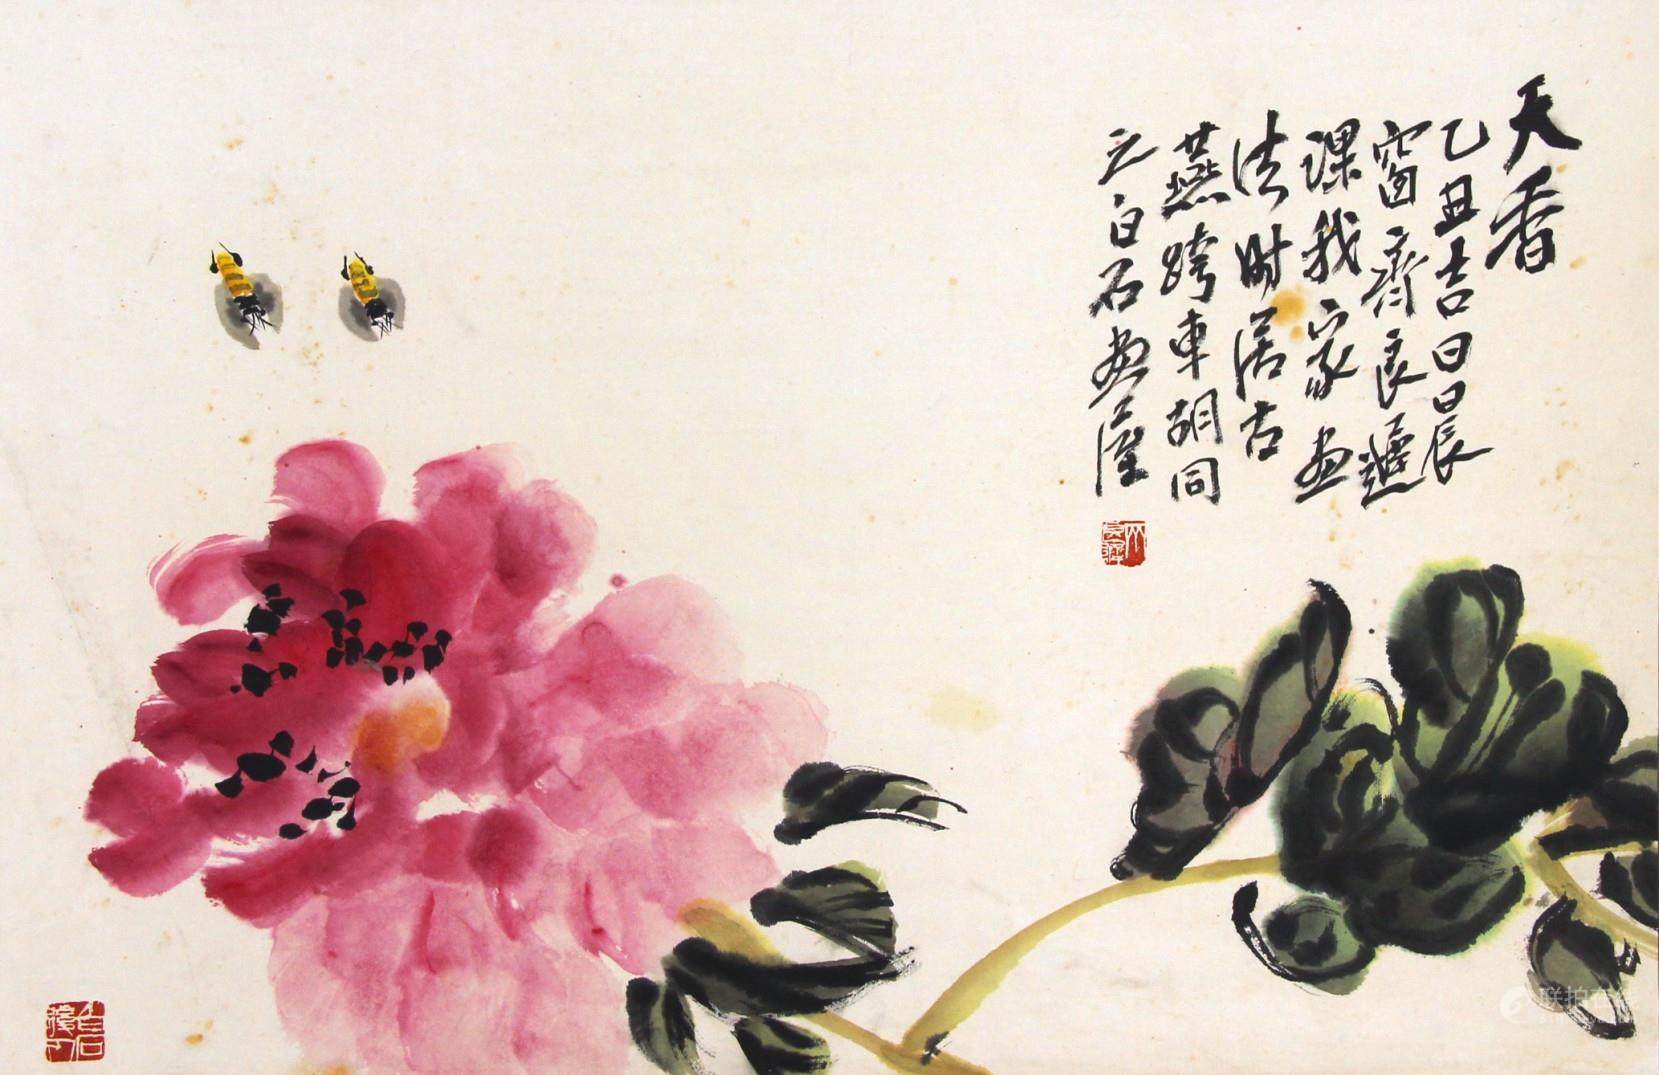 天香
乙丑吉日日辰
窗齊良遲
課我家畫
法时居古
燕跨車胡同
之白石畫屋
白石後人
联拍在线